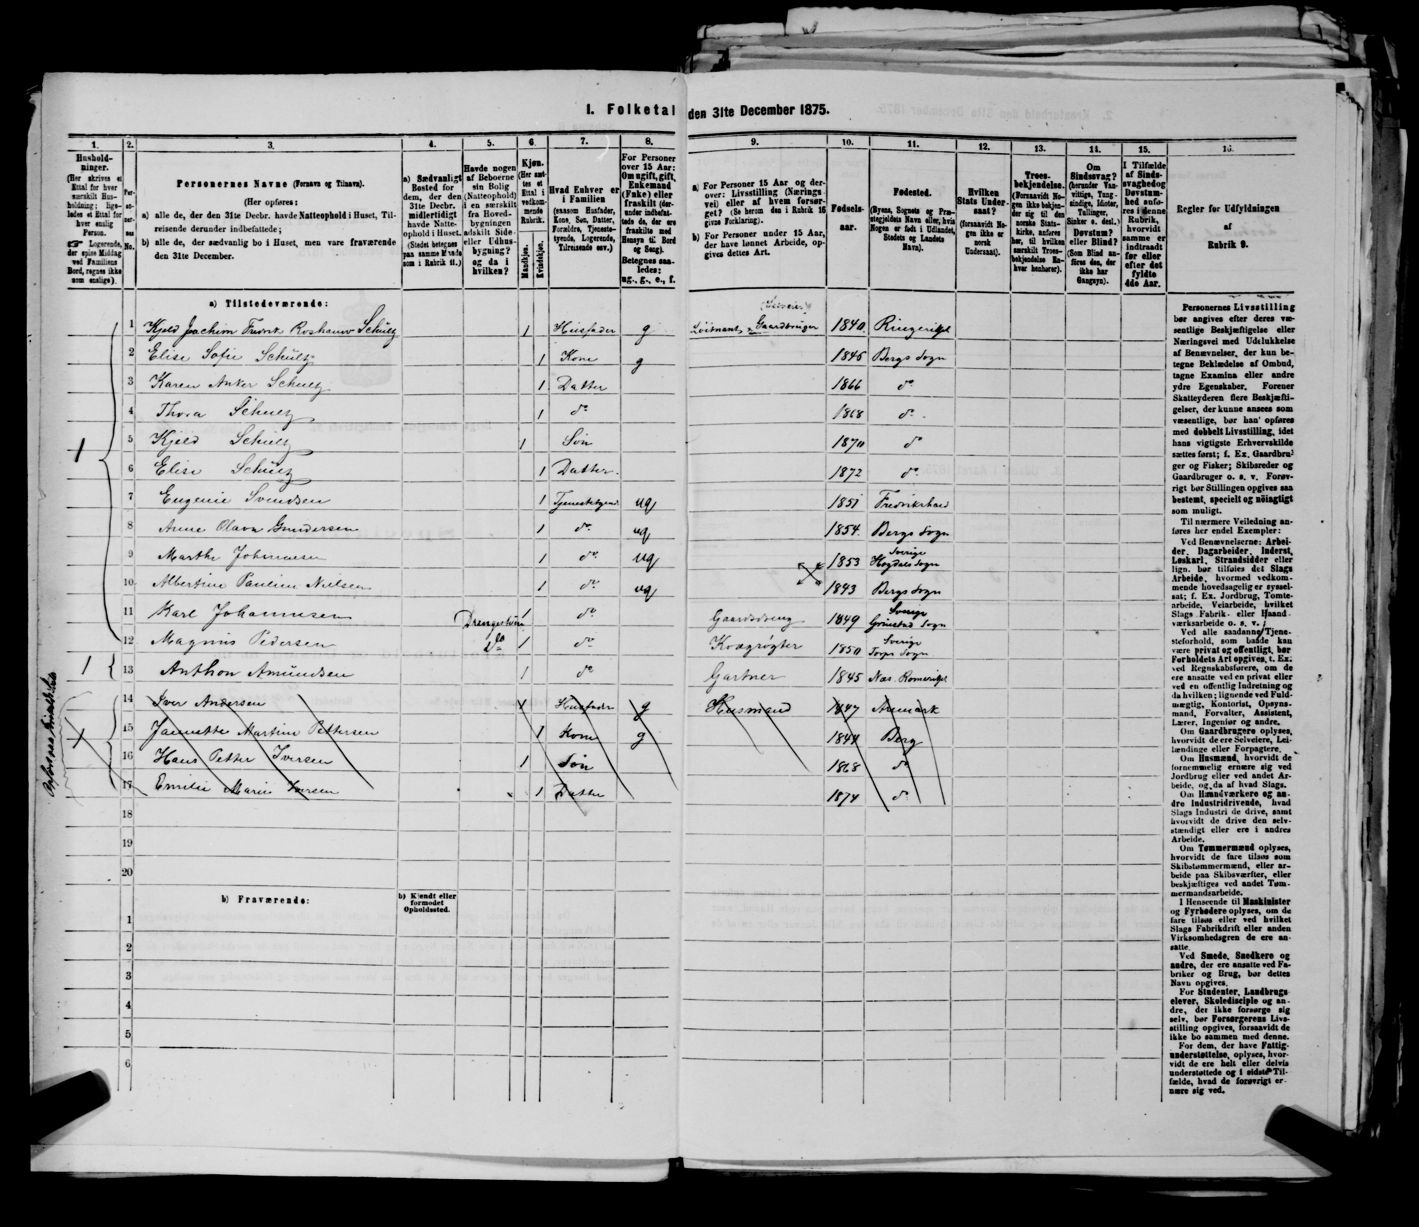 I. Folketal den 31te December 1875.
1. 2. 3. 4. 5. 6. 7. 8. 9. 10. 11. 12. 13. 14. 15. 16.
Hushold-
ninger.
(Her skrives et
Ettal for hver
særskilt Hus-
holdning; lige-
ledes et Ettal for
hver enslig
Person.
☞ Logerende,
der spise Middag
ved Familiens
Bord, regnes ikke
som enslige).
Personernes Navne (Fornavn og Tilnavn).
(Her opføres:
a) alle de, der den 31te Decbr. havde Natteophold i Huset, Til-
reisende derunder indbefattede;
b) alle de, der sædvanlig bo i Huset, men vare fraværende
den 31te December.
a) Sædvanligt
Bosted for
dem, der den
31te Decbr.
midlertidigt
havde Natte-
ophold i Huset.
(Stedet betegnes
paa samme Maade
som i Rubrik 11.)
Havde nogen
af Beboerne
sin Bolig
(Natteophold)
i en særskilt
fra Hoved-
bygningen
adskilt Side-
eller Udhus-
bygning?
og da i
hvilken?
Kjøn.
(Her sæt-
tes et
Ettal i
vedkom-
mende
Rubrik.
Mandkjøn.
Kvindekjøn.
Hvad Enhver er
i Familien
(saasom Husfader,
Kone, Søn, Datter,
Forældre, Tjeneste-
tyende, Logerende,
Tilreisende osv.)
For Personer
over 15 Aar:
Om ugift, gift,
Enkemand
(Enke) eller
fraskilt (der-
under indbefat-
tede de, der ere
fraskilte med
Hensyn til Bord
og Seng).
Betegnes saa-
ledes:
ug., g., e., f.
a) For Personer 15 Aar og der-
over: Livsstilling (Nærings-
vei) eller af hvem forsør-
get? (Se herom den i Rubrik 16
givne Forklaring).
b) For Personer under 15 Aar,
der have lønnet Arbeide, op-
gives dettes Art.
Fødsels-
aar.
Fødested.
(Byens, Sognets og Præ-
stegjeldets Navn eller, hvis
Nogen er født i Udlandet,
Stedets og Landets
Navn).
Hvilken
Stats Under-
saat?
(forsaavidt No-
gen ikke er
norsk
Undersaat).
Troes-
bekjendelse.
(Forsaavidt No-
gen ikke bekjen-
der sig til den
norske Stats-
kirke, anføres
her, til hvilken
særskilt Troes-
bekjendelse En-
hver henhører).
Om
Sindssvag?
(herunder Van-
vittige, Tung-
sindige, Idioter,
Tullinger,
Sinker o. desl.)
Døvstum?
eller Blind?
(Som Blind an-
føres den, der
ikke har
Gangsyn).
I Tilfælde
af Sinds-
svaghed og
Døvstum-
hed anfø-
res i denne
Rubrik,
hvorvidt
samme er
indtraadt
før eller
efter det
fyldte
4de Aar.
Regler for Udfyldningen
af
Rubrik 9.
a) Tilstedeværende:
1 Kjeld Joachim Fredrik Schultz 1 Husfader g Løitnant, Gaardbruger (Selveier) 1840 Ringeriget
2 Elise Sofie Schultz 1 Kone g 1845 Bergs Sogn
3 Karen Anker Schultz 1 Datter 1866 do
4 Thora Schultz 1 do 1868 do
5 Kjeld Schultz 1 Søn 1870 do
6 Elise Schultz 1 Datter 1872 do
7 Eugenie Svendsen 1 Tjenestetyende ug 1851 Fredrikshald
8 Anne Olava Gundersen 1 do ug 1854 Bergs Sogn
9 Marthe Johannesen 1 do ug 1853 Sverige Hogdals Sogn
10 Albertine Pauline Nielsen 1 do ug 1843 Bergs Sogn
11 Karl Johannesen Drengestuen 1 do Gaardsdreng 1849 Sverige Grinstad Sogn
12 Magnus Pedersen do 1 do Kvægrøgter 1850 Sverige Torps Sogn
1 13 Anthon Amundsen do Gartner 1845 Næs Romeriget
14 Iver Andersen 1 Husfader g Husmand 1847 Aremark
15 Martine Pettersen 1 Kone g 1844 Berg
16 Hans Petter Iversen 1 Søn 1868 do
17 Emilie Marie Iversen 1 Datter 1874 do
18
19
20
b) Fraværende:
b) Kjendt eller
formodet
Opholdssted.
1
2
3
4
5
6
Personernes Livsstilling
bør angives efter deres væ-
sentlige Beskjæftigelse eller
Næringsvei med Udelukkelse
af Benævnelser, der kun be-
tegne Beklædelse af Ombud,
tagne Examina eller andre
ydre Egenskaber. Forener
Skatteyderen flere Beskjæfti-
gelser, der kunne ansees som
væsentlige, bør han opføres
med dobbelt Livsstilling, idet
hans vigtigste Erhvervskilde
sættes først; f. Ex. Gaardbru-
ger og Fisker; Skibsreder og
Gaardbruger o. s. v. Forøv-
rigt bør Stillingen opgives saa
bestemt, specielt og nøiagtigt
som muligt.
Til nærmere Veiledning an-
føres her endel Exempler:
Ved Benævnelserne: Arbei-
der, Dagarbeider, Inderst,
Løskarl, Strandsidder eller
lign. bør tilføies det Slags
Arbeide, hvormed vedkom-
mende hovedsagelig er syssel-
sat; f. Ex. Jordbrug, Tomte-
arbeide, Veiarbeide, hvilket
Slags Fabrik- eller Haand-
værksarbeide o. s. v.
Ved alle saadanne Tjene-
steforhold, som baade kan
være privat og offentligt, bør
Forholdets Art opgives, t. Ex.
ved Regnskabsførere, om de
ere ansatte ved en privat eller
ved en offentlig Indretning og
da hvilken; lignende ved Fuld-
mægtig, Kontorist, Opsyns-
mand, Forvalter, Assistent,
Lærer, Ingeniør og andre.
Om Gaardbrugere oplyses,
hvorvidt de ere Selveiere, Lei-
lændinge eller Forpagtere.
Om Husmænd, hvorvidt de
fornemmelig ernære sig ved
Jordbrug eller ved andet Ar-
beide, og da af hvad Slags.
Om Haandværkere og an-
dre Industridrivende, hvad
Slags Industri de drive, samt
hvorvidt de drive den selv-
stændigt eller ere i andres
Arbeide.
Om Tømmermænd oplyses,
hvorvidt de fare tilsøs som
Skibstømmermænd, eller ar-
beide paa Skibsværfter, eller
beskjæftiges ved andet Tøm-
mermandsarbeide.
I Henseende til Maskinister
og Fyrbødere oplyses, om de
fare tilsøs eller ved hvilket
Slags Fabrikdrift eller anden
Virksomhedsgren de ere an-
satte.
Ved Smede, Snedkere og
andre, der ere ansatte ved Fa-
briker og Brug, bør dettes
Navn opgives.
For Studenter, Landbrugs-
elever, Skoledisciple og an-
dre, der ikke forsørge sig
selv, bør Forsørgerens Livs-
stilling opgives, forsaavidt de
ikke bo sammen med denne.
For dem, der have Fattig-
understøttelse, oplyses, hvor-
vidt de ere helt eller delvis
understøttede og i sidste Til-
fælde, hvad de forøvrigt er-
nære sig ved.